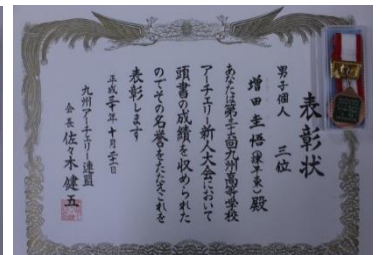 表彰状
男子個人 三位
増田圭悟(諫早東)殿
あなたは第三十回九州高等学校
アーチェリー新人大会において
頭書の成績を収められた
のでその名誉をたたえこれを
表彰します
平成 年十月 日
九州アーチェリー連盟
会長 佐々木健